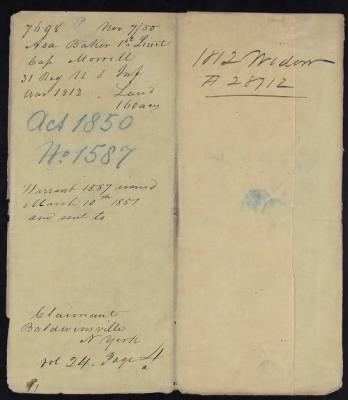 7698 P Nov 7/50
Asa Baker 1st Lieut
Cap Morrill
31 Reg U S Inf
War 1812 Land
160 acres
Act 1850
No 1587
Warrant 1587 issued
March 10th 1851
and sent to
Claimant
Baldwinsville
N York
vol 24. Page 4
1812 Widow
# 28712